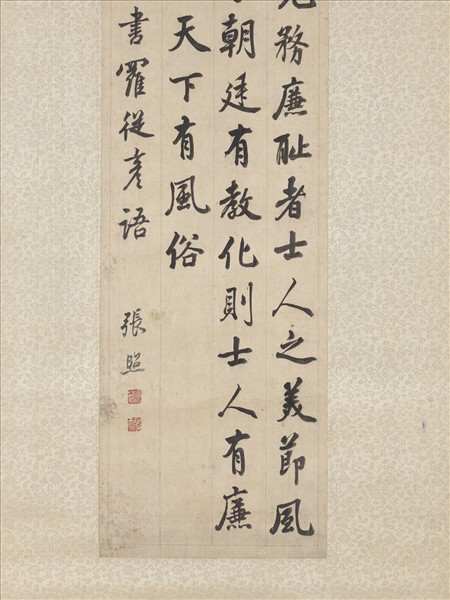 務廉恥者士人之美節風
朝廷有教化則士人有廉
天下有風俗
書羅從彥語
張照